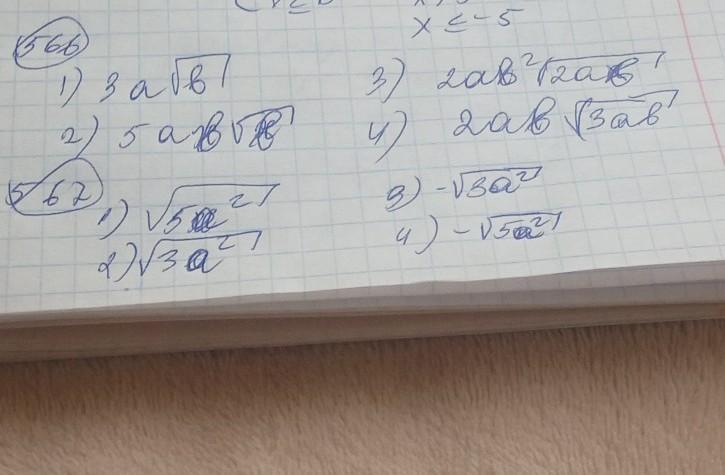 x ≤ -5
566
1) 3a√b 3) 2ab²√2ab
2) 5ab√b 4) 2ab√3ab
567
1) √5a² 3) -√3a²
2) √3a² 4) -√5a²